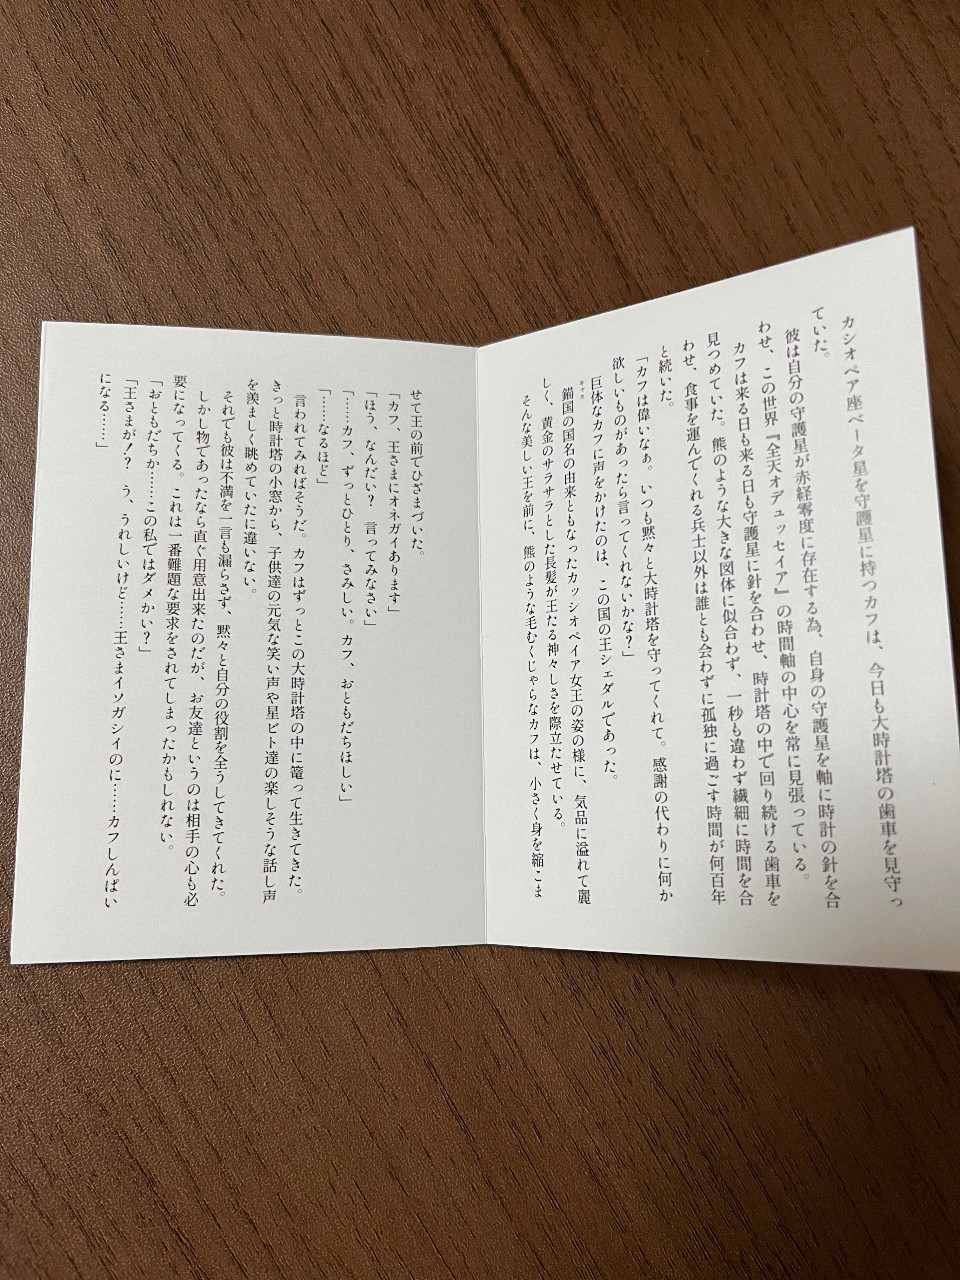 カシオペア座ベータ星を守護星に持つカフは、今日も大時計塔の歯車を見守っ
ていた。
彼は自分の守護星が赤経零度に存在する為、自身の守護星を軸に時計の針を合
わせ、この世界『全天オデュッセイア』の時間軸の中心を常に見張っている。
カフは来る日も来る日も守護星に針を合わせ、時計塔の中で回り続ける歯車を
見つめていた。熊のような大きな図体に似合わず、一秒も違わず繊細に時間を合
わせ、食事を運んでくれる兵士以外は誰とも会わずに孤独に過ごす時間が何百年
と続いた。
「カフは偉いなぁ。いつも黙々と大時計塔を守ってくれて。感謝の代わりに何か
欲しいものがあったら言ってくれないかな？」
巨体なカフに声をかけたのは、この国の王シェダルであった。
錨国の国名の由来ともなったカッシオペイア女王の姿の様に、気品に溢れて麗
キャス
しく、黄金のサラサラとした長髪が王たる神々しさを際立たせている。
そんな美しい王を前に、熊のような毛むくじゃらなカフは、小さく身を縮こま
せて王の前でひざまづいた。
「カフ、王さまにオネガイあります」
「ほう、なんだい？　言ってみなさい」
「……カフ、ずっとひとり、さみしい。カフ、おともだちほしい」
「……なるほど」
言われてみればそうだ。カフはずっとこの大時計塔の中に篭って生きてきた。
きっと時計塔の小窓から、子供達の元気な笑い声や星ビト達の楽しそうな話し声
を羨ましく眺めていたに違いない。
それでも彼は不満を一言も漏らさず、黙々と自分の役割を全うしてきてくれた。
しかし物であったなら直ぐ用意出来たのだが、お友達というのは相手の心も必
要になってくる。これは一番難題な要求をされてしまったかもしれない。
「おともだちか……この私ではダメかい？」
「王さまが！？　う、うれしいけど……王さまイソガシイのに……カフしんぱい
になる……」